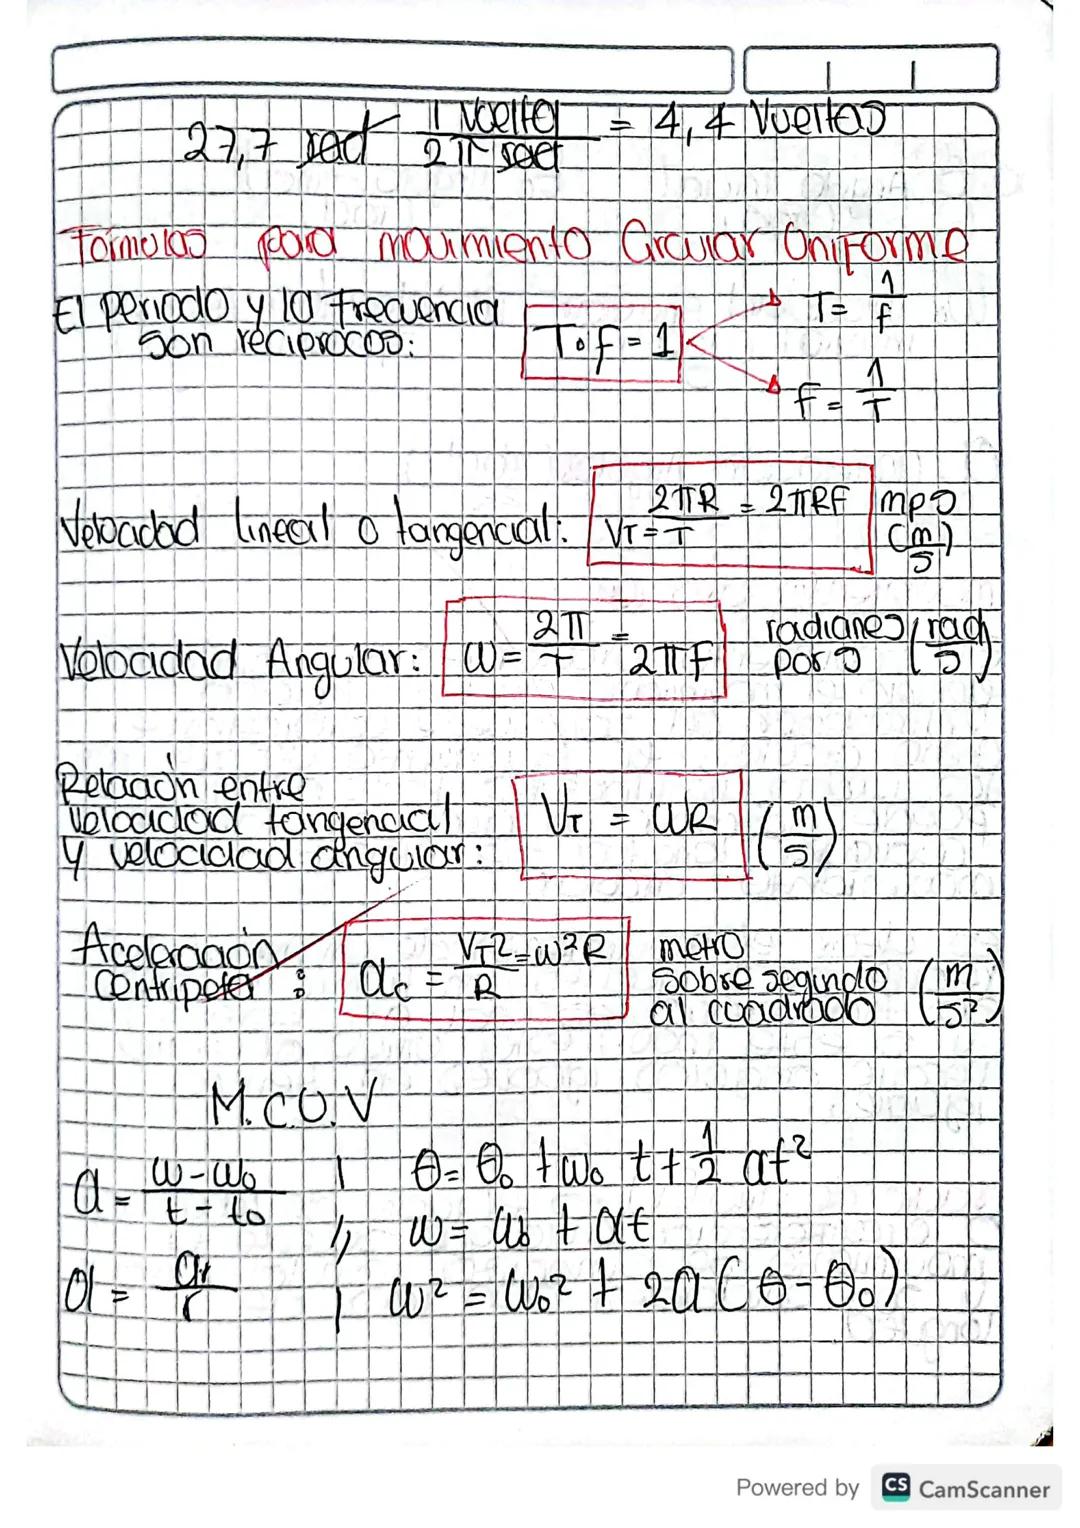 27,7 rad 1 vuelta / 2π rad = 4,4 Vueltas
Formulas para movimiento Circular Uniforme
El periodo y la Frecuencia
son reciprocos: T·f = 1
T = 1/f
f = 1/T
Velocidad lineal o tangencial: VT = 2πR/T = 2πRF mps (m/s)
Velocidad Angular: ω = 2π/T = 2πF radianes por s (rad/s)
Relación entre
velocidad tangencial
y velocidad angular: VT = ωR (m/s)
Aceleración
centripeta: ac = VT²/R = ω²R metro
sobre segundo
al cuadrado (m/s²)
M.C.U.V
α = ω-ω₀/t-t₀ | θ = θ₀ + ω₀ t + 1/2 αt²
ω = ω₀ + αt
ω² = ω₀² + 2α(θ-θ₀)
Powered by CS CamScanner